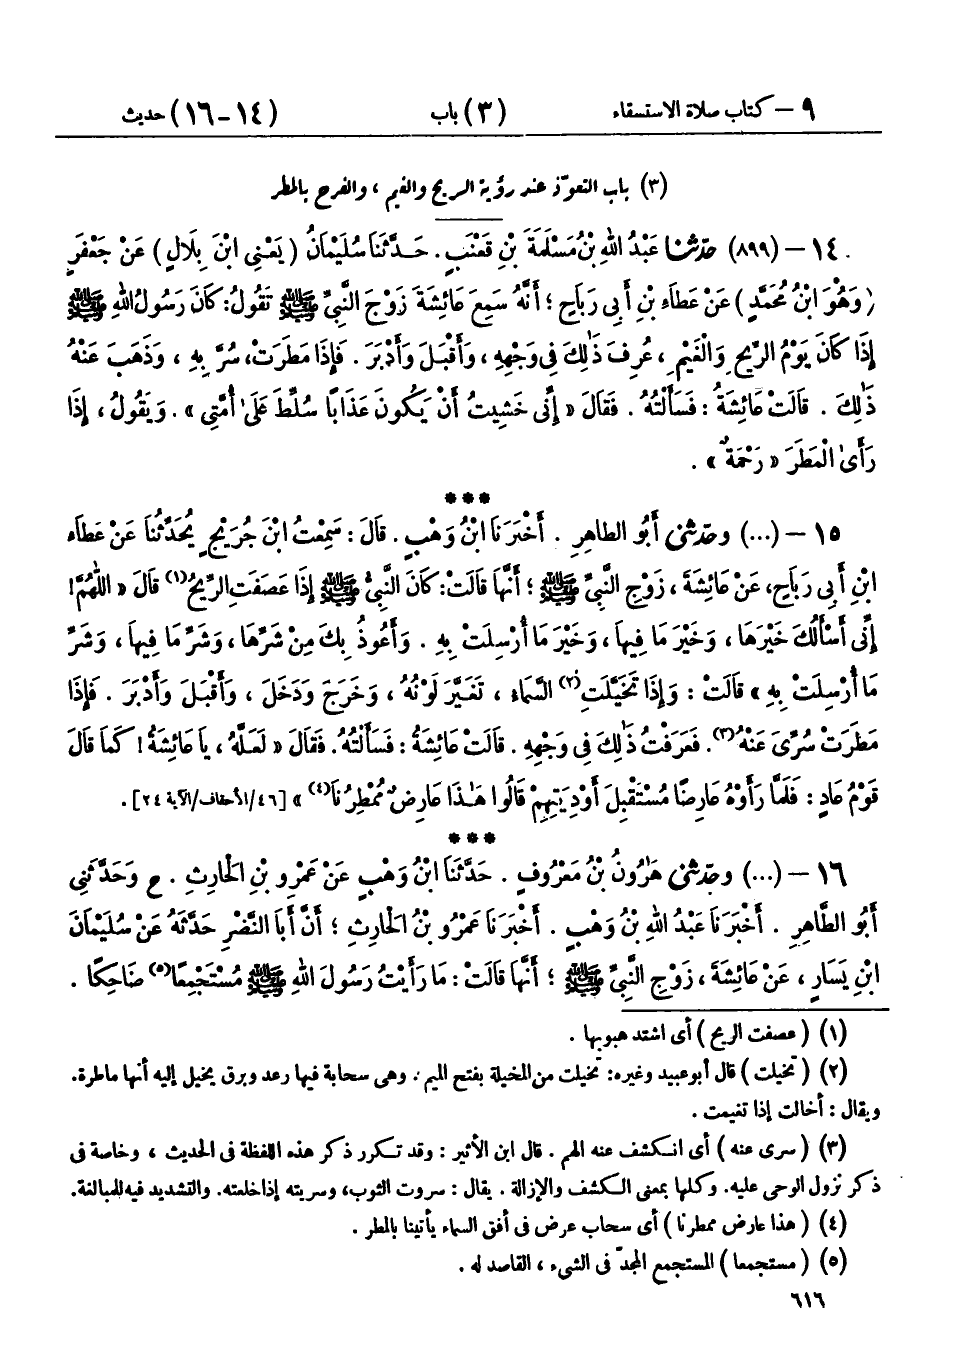 ٩ – كتاب صلاة الاستسقاء (٣) باب (١٤-١٦) حديث
(٣) باب التعوّذ عند رؤية الريح والغيم ، والفرح بالمطر
١٤ – (٨٩٩) حدّثنا عَبْدُ اللهِ بْنُ مَسْلَمَةَ بْنِ قَعْنَبٍ . حَدَّثَنَا سُلَيْمَانُ ( يَعْنِي ابْنَ بِلَالٍ ) عَنْ جَعْفَرٍ
( وَهُوَ ابْنُ مُحَمَّدٍ ) عَنْ عَطَاءِ بْنِ أَبِي رَبَاحٍ ؛ أَنَّهُ سَمِعَ عَائِشَةَ زَوْجَ النَّبِيِّ ﷺ تَقُولُ : كَانَ رَسُولُ اللهِ ﷺ
إِذَا كَانَ يَوْمُ الرِّيحِ وَالْغَيْمِ ، عُرِفَ ذَٰلِكَ فِي وَجْهِهِ ، وَأَقْبَلَ وَأَدْبَرَ . فَإِذَا مَطَرَتْ ، سُرَّ بِهِ ، وَذَهَبَ عَنْهُ
ذَٰلِكَ . قَالَتْ عَائِشَةُ : فَسَأَلْتُهُ . فَقَالَ « إِنِّي خَشِيتُ أَنْ يَكُونَ عَذَابًا سُلِّطَ عَلَىٰ أُمَّتِي » . وَيَقُولُ ، إِذَا
رَأَىٰ الْمَطَرَ « رَحْمَةٌ » .
***
١٥ – (...) وحدّثني أَبُو الطَّاهِرِ . أَخْبَرَنَا ابْنُ وَهْبٍ . قَالَ : سَمِعْتُ ابْنَ جُرَيْجٍ يُحَدِّثُنَا عَنْ عَطَاءِ
ابْنِ أَبِي رَبَاحٍ ، عَنْ عَائِشَةَ ، زَوْجِ النَّبِيِّ ﷺ ؛ أَنَّهَا قَالَتْ : كَانَ النَّبِيُّ ﷺ إِذَا عَصَفَتِ الرِّيحُ(١) قَالَ « اللّٰهُمَّ !
إِنِّي أَسْأَلُكَ خَيْرَهَا ، وَخَيْرَ مَا فِيهَا ، وَخَيْرَ مَا أُرْسِلَتْ بِهِ . وَأَعُوذُ بِكَ مِنْ شَرِّهَا ، وَشَرِّ مَا فِيهَا ، وَشَرِّ
مَا أُرْسِلَتْ بِهِ » قَالَتْ : وَإِذَا تَخَيَّلَتِ(٢) السَّمَاءُ ، تَغَيَّرَ لَوْنُهُ ، وَخَرَجَ وَدَخَلَ ، وَأَقْبَلَ وَأَدْبَرَ . فَإِذَا
مَطَرَتْ سُرِّيَ عَنْهُ(٣) . فَعَرَفْتُ ذَٰلِكَ فِي وَجْهِهِ . قَالَتْ عَائِشَةُ : فَسَأَلْتُهُ . فَقَالَ « لَعَلَّهُ ، يَا عَائِشَةُ ! كَمَا قَالَ
قَوْمُ عَادٍ : فَلَمَّا رَأَوْهُ عَارِضًا مُسْتَقْبِلَ أَوْدِيَتِهِمْ قَالُوا هَٰذَا عَارِضٌ مُمْطِرُنَا(٤) » [٤٦/الأحقاف/الآية ٢٤] .
***
١٦ – (...) وحدّثني هَارُونُ بْنُ مَعْرُوفٍ . حَدَّثَنَا ابْنُ وَهْبٍ عَنْ عَمْرِو بْنِ الْحَارِثِ . ح وَحَدَّثَنِي
أَبُو الطَّاهِرِ . أَخْبَرَنَا عَبْدُ اللهِ بْنُ وَهْبٍ . أَخْبَرَنَا عَمْرُو بْنُ الْحَارِثِ ؛ أَنَّ أَبَا النَّضْرِ حَدَّثَهُ عَنْ سُلَيْمَانَ
ابْنِ يَسَارٍ ، عَنْ عَائِشَةَ ، زَوْجِ النَّبِيِّ ﷺ ؛ أَنَّهَا قَالَتْ : مَا رَأَيْتُ رَسُولَ اللهِ ﷺ مُسْتَجْمِعًا(٥) ضَاحِكًا .
(١) ( عصفت الريح ) أى اشتد هبوبها .
(٢) ( تخيلت ) قال أبو عبيد وغيره : تخيلت من المخيلة بفتح الميم . وهى سحابة فيها رعد وبرق يخيل إليه أنها ماطرة.
ويقال : أخالت إذا تغيمت .
(٣) ( سرى عنه ) أى انكشف عنه الهم . قال ابن الأثير : وقد تكرر ذكر هذه اللفظة فى الحديث ، وخاصة فى
ذكر نزول الوحى عليه. وكلها بمعنى الكشف والإزالة . يقال : سروت الثوب، وسريته إذا خلعته. والتشديد فيه للمبالغة.
(٤) ( هذا عارض ممطرنا ) أى سحاب عرض فى أفق السماء يأتينا بالمطر .
(٥) ( مستجمعا ) المستجمع المجدّ فى الشىء ، القاصد له .
٦١٦